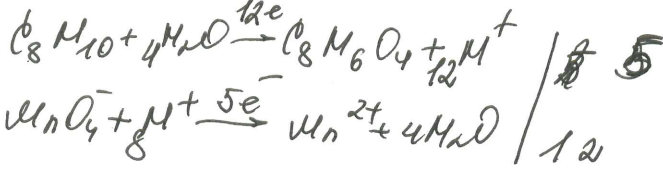 C₈H₁₀ + 4H₂O 12e → C₈H₆O₄ + 12H⁺ | 5
MnO₄⁻ + 8H⁺ 5e⁻ → Mn²⁺ + 4H₂O | 12